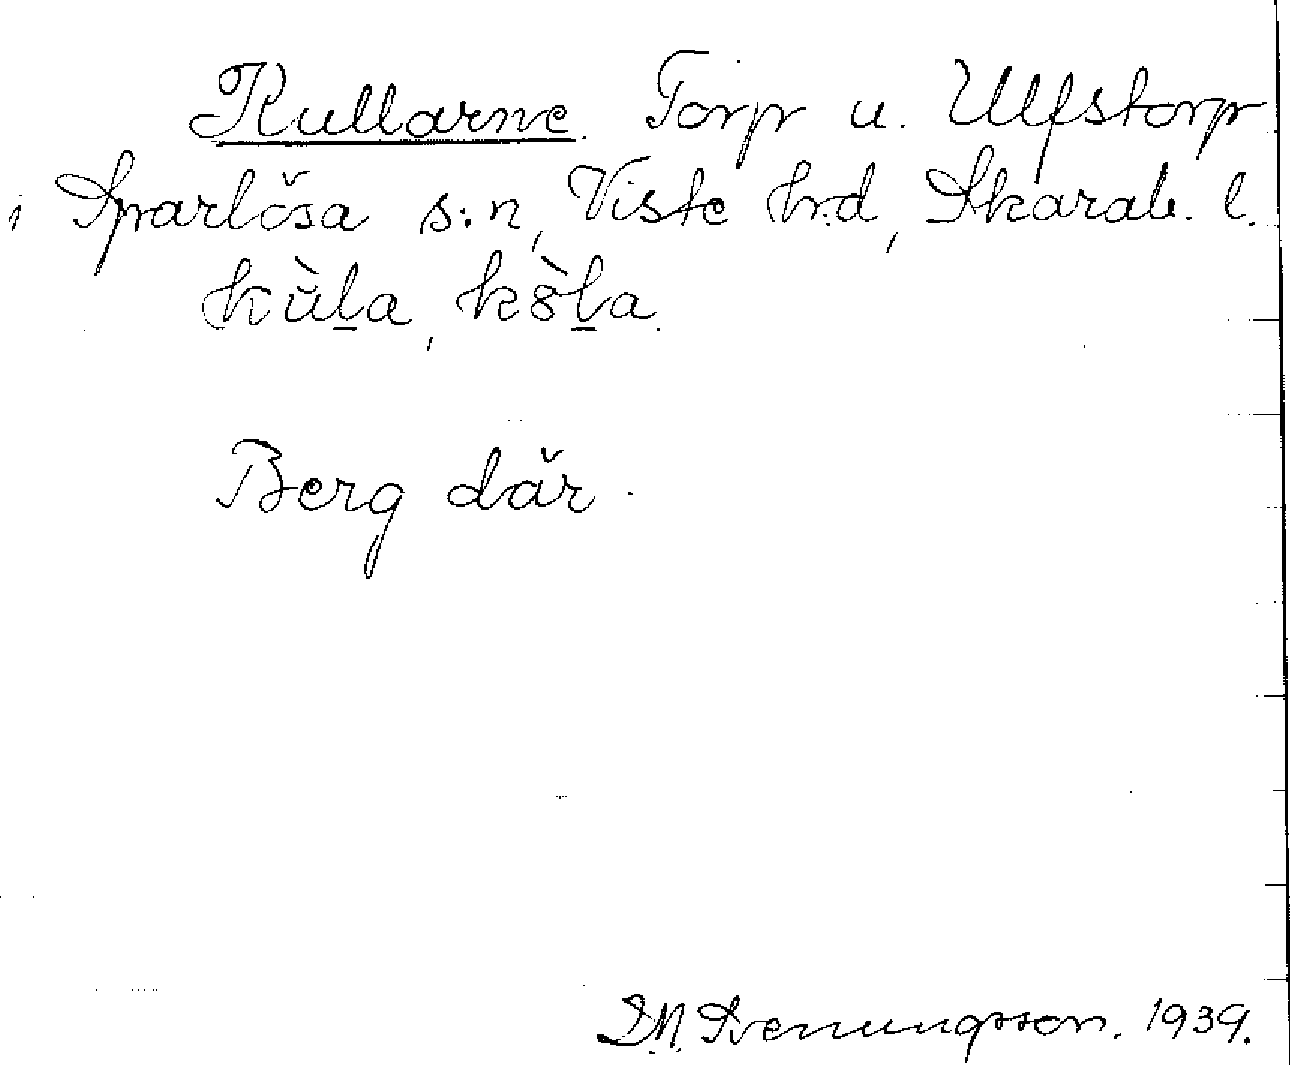 Kullarne. Torp u. Ulfstorp
i Sparlösa s:n, Viste h:d, Skarab. l.
kùl̠a, k8̀l̠a.
Berg där.
D.N. Svenungsson. 1939.